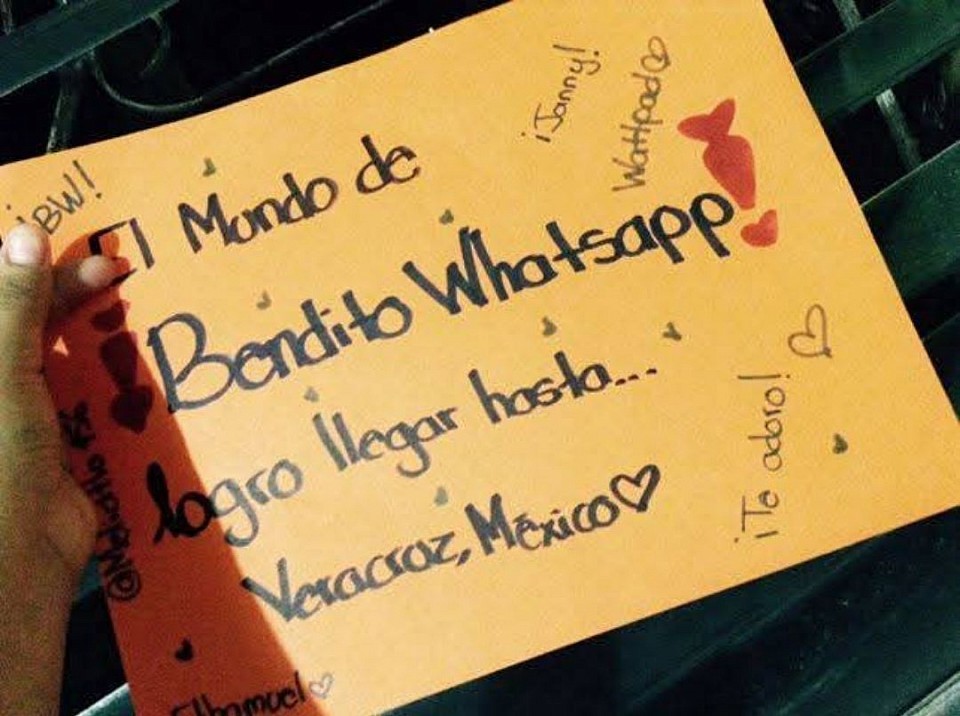 ¡BW!
El Mundo de
Bendito Whatsapp!
logro llegar hasta...
Veracruz, México
¡Janny!
Wattpad
¡Te adoro!